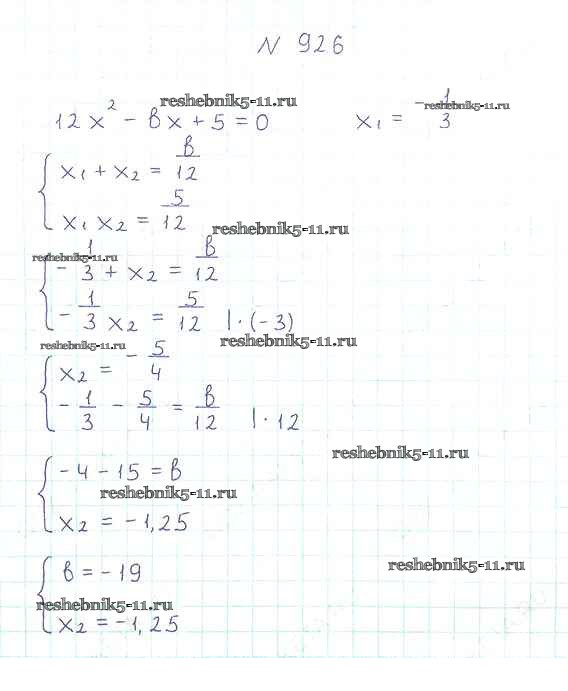 N 926
reshebnik5-11.ru
12x² - вx + 5 = 0    x₁ = -1/3
reshebnik5-11.ru
x₁ + x₂ = в/12
x₁ x₂ = 5/12
reshebnik5-11.ru
reshebnik5-11.ru
-1/3 + x₂ = в/12
-1/3 x₂ = 5/12 | · (-3)
reshebnik5-11.ru
reshebnik5-11.ru
x₂ = -5/4
-1/3 - 5/4 = в/12 | · 12
reshebnik5-11.ru
-4 - 15 = в
reshebnik5-11.ru
x₂ = -1,25
reshebnik5-11.ru
в = -19
reshebnik5-11.ru
x₂ = -1,25